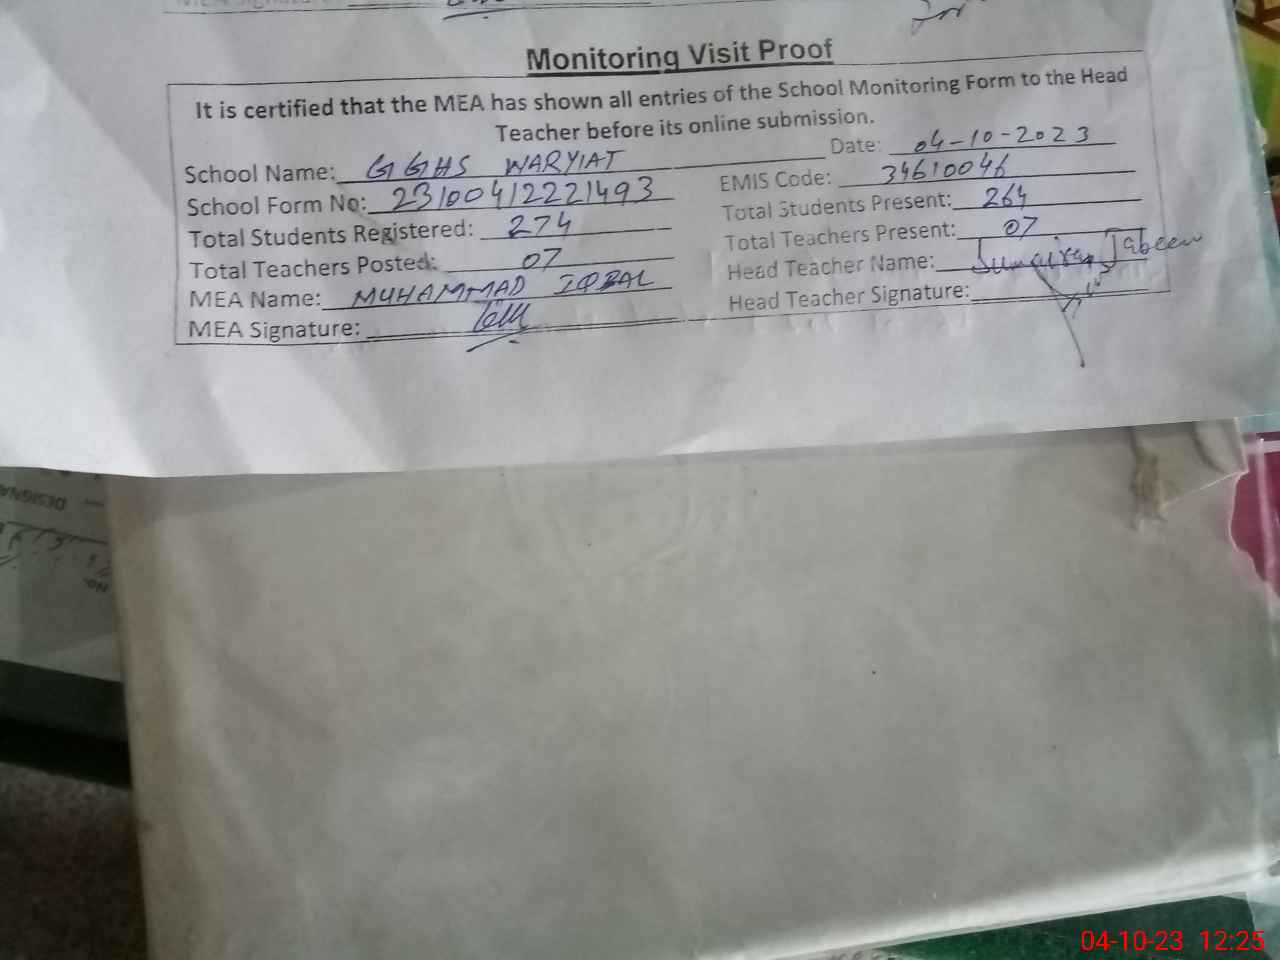 Monitoring Visit Proof
It is certified that the MEA has shown all entries of the School Monitoring Form to the Head
Teacher before its online submission.
School Name: GGHS WARYIAT Date: 04-10-2023
School Form No: 23100412221493 EMIS Code: 34610046
Total Students Registered: 274 Total Students Present: 264
Total Teachers Posted: 07 Total Teachers Present: 07
MEA Name: MUHAMMAD IQBAL Head Teacher Name: Sumaira Jabeen
MEA Signature: Head Teacher Signature:
DESIGNA
NO.
04-10-23 12:25